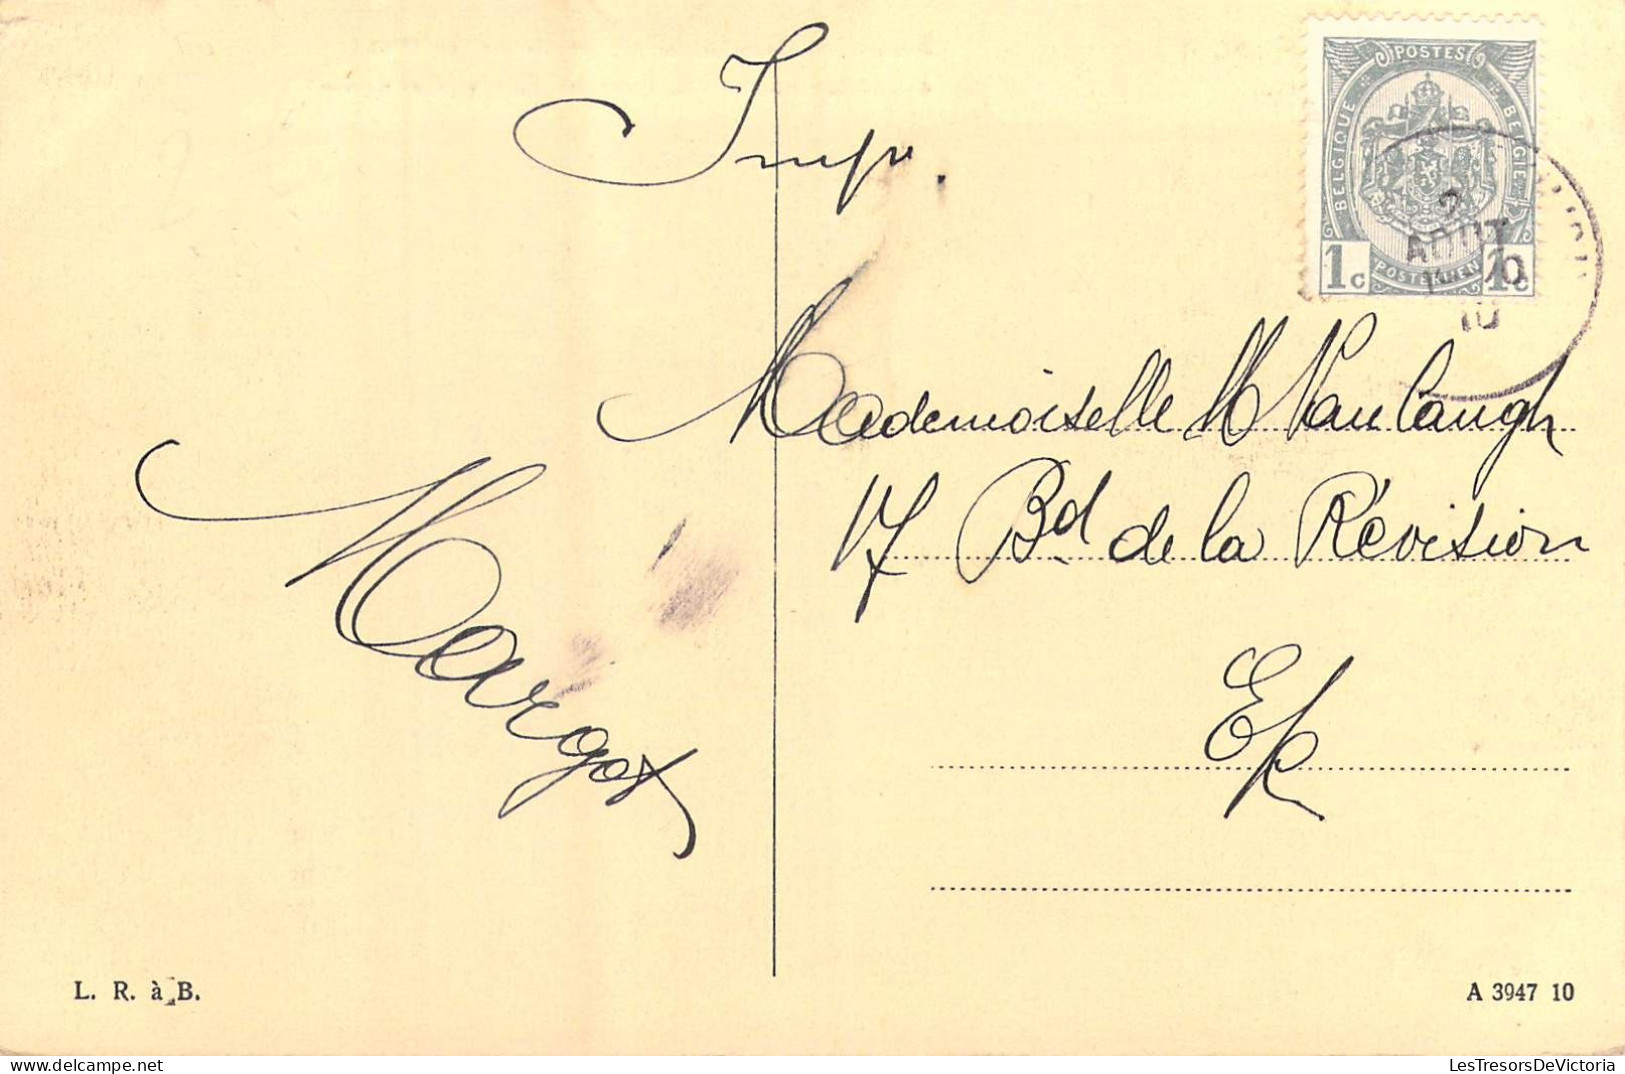 Imp.
POSTES
BELGIQUE
BELGIE
1c
POSTERIJEN
1c
2
AOUT
10
Mademoiselle M Van Laugh
17 Bd de la Révision
E/v
Margot
L. R. à B.
A 3947 10
LesTresorsDeVictoria